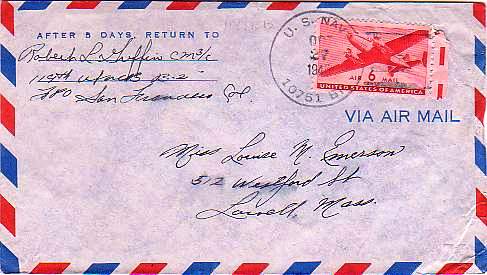 AFTER 5 DAYS, RETURN TO
Robert L Griffin CM3/c
FPO San Francisco Cal
U. S. NAVY
27
194
10751 BR
AIR 6 MAIL
CENTS
UNITED STATES OF AMERICA
VIA AIR MAIL
Miss Louise M. Emerson
512 Westford St
Lowell, Mass.